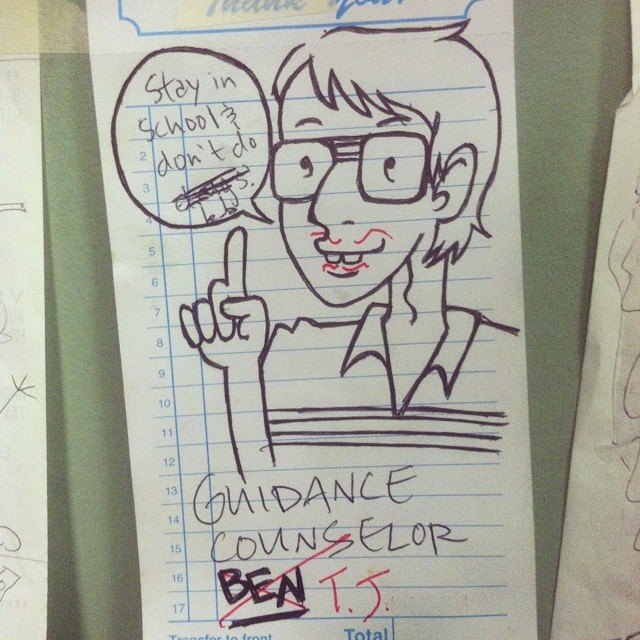 Thank You!
Stay in
School &
don't do
L.J.s.
2
3
4
5
6
7
8
9
10
11
12
13
14
15
16
17
GUIDANCE
COUNSELOR
BEN T.J.
Transfer to front Total